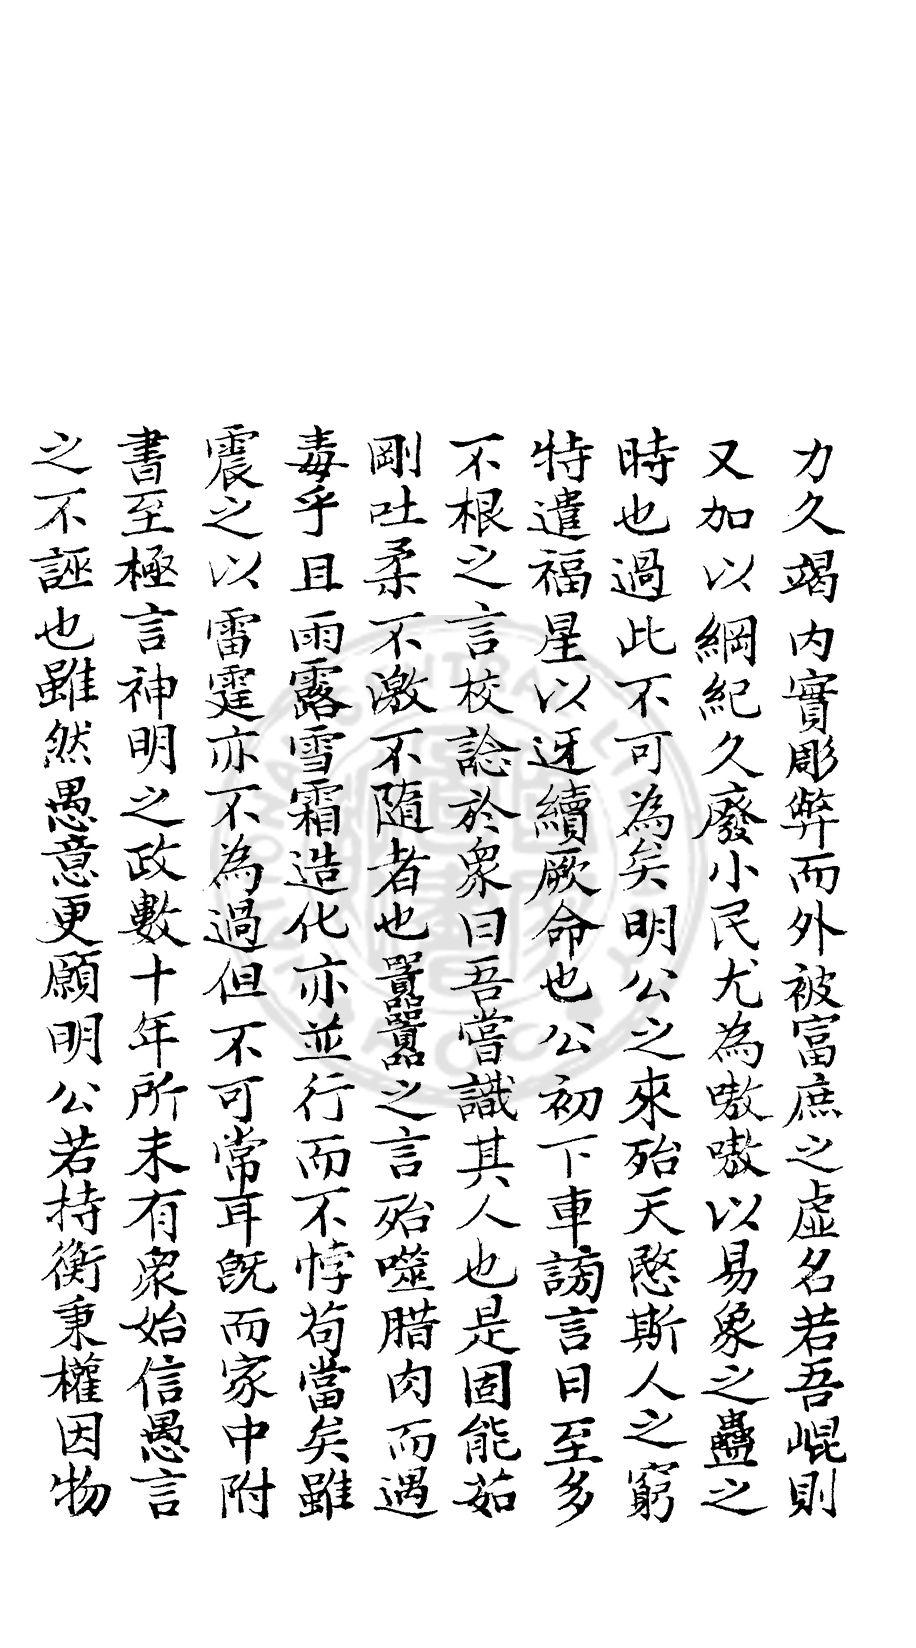 力久竭内實彫弊而外被富庶之虛名若吾崐則
又加以綱紀久廢小民尤為嗷嗷以易象之蠱之
時也過此不可為矣明公之來殆天愍斯人之窮
特遣福星以迓續厥命也公初下車謗言日至多
不根之言校諗於衆曰吾嘗識其人也是固能茹
剛吐柔不激不随者也嚚嚚之言殆噬腊肉而遇
毒乎且雨露雪霜造化亦並行而不悖苟當矣雖
震之以雷霆亦不為過但不可常耳旣而家中附
書至極言神明之政數十年所未有衆始信愚言
之不誣也雖然愚意更願明公若持衡秉權因物